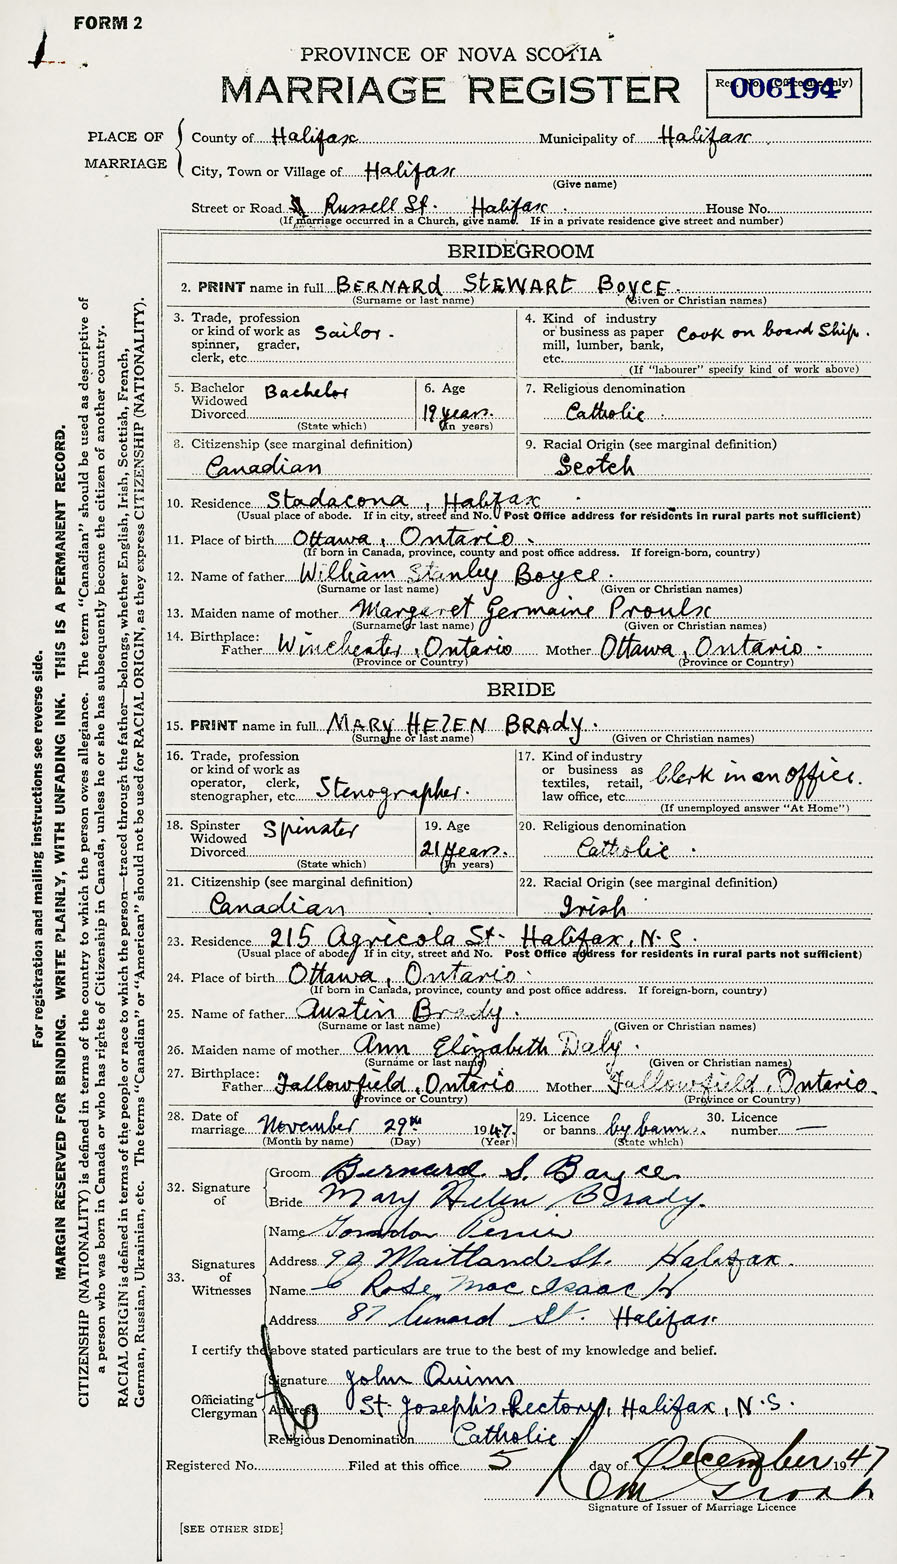 FORM 2
PROVINCE OF NOVA SCOTIA
MARRIAGE REGISTER
Reg. No. (Office use only)
006194
PLACE OF MARRIAGE
County of Halifax Municipality of Halifax
City, Town or Village of Halifax
(Give name)
Street or Road Russell St. Halifax. House No.
(If marriage occurred in a Church, give name. If in a private residence give street and number)
BRIDEGROOM
2. PRINT name in full BERNARd STEWARt BOYCE.
(Surname or last name) (Given or Christian names)
3. Trade, profession or kind of work as spinner, grader, clerk, etc. Sailor.
4. Kind of industry or business as paper mill, lumber, bank, etc. Cook on board Ship.
(If "labourer" specify kind of work above)
5. Bachelor Widowed Divorced Bachelor
(State which)
6. Age 19 years.
(In years)
7. Religious denomination Catholic.
8. Citizenship (see marginal definition) Canadian
9. Racial Origin (see marginal definition) Scotch
10. Residence Stadacona, Halifax
(Usual place of abode. If in city, street and No. Post Office address for residents in rural parts not sufficient)
11. Place of birth Ottawa, Ontario.
(If born in Canada, province, county and post office address. If foreign-born, country)
12. Name of father William Stanley Boyce.
(Surname or last name) (Given or Christian names)
13. Maiden name of mother Margaret Germaine Proulx
(Surname or last name) (Given or Christian names)
14. Birthplace: Father Winchester, Ontario Mother Ottawa, Ontario.
(Province or Country) (Province or Country)
BRIDE
15. PRINT name in full MARY HELEN BRADY.
(Surname or last name) (Given or Christian names)
16. Trade, profession or kind of work as operator, clerk, stenographer, etc. Stenographer.
17. Kind of industry or business as textiles, retail, law office, etc. Clerk in an office.
(If unemployed answer "At Home")
18. Spinster Widowed Divorced Spinster
(State which)
19. Age 21 years.
(In years)
20. Religious denomination Catholic.
21. Citizenship (see marginal definition) Canadian
22. Racial Origin (see marginal definition) Irish
23. Residence 215 Agricola St. Halifax, N.S.
(Usual place of abode. If in city, street and No. Post Office address for residents in rural parts not sufficient)
24. Place of birth Ottawa, Ontario.
(If born in Canada, province, county and post office address. If foreign-born, country)
25. Name of father Austin Brady.
(Surname or last name) (Given or Christian names)
26. Maiden name of mother Ann Elizabeth Daly.
(Surname or last name) (Given or Christian names)
27. Birthplace: Father Fallowfield, Ontario Mother Fallowfield, Ontario.
(Province or Country) (Province or Country)
28. Date of marriage November 29th 1947.
(Month by name) (Day) (Year)
29. Licence or banns by banns.
(State which)
30. Licence number —
32. Signature of
Groom Bernard S. Boyce
Bride Mary Helen Brady.
33. Signatures of Witnesses
Name
Address 92 Maitland St. Halifax.
Name Rose Mac Isaac
Address 87 Cunard St. Halifax
I certify the above stated particulars are true to the best of my knowledge and belief.
Officiating Clergyman
Signature John Quinn
Address St. Joseph's Rectory, Halifax, N.S.
Religious Denomination Catholic
Registered No. Filed at this office 5 day of December 1947
Signature of Issuer of Marriage Licence
[SEE OTHER SIDE]
For registration and mailing instructions see reverse side.
MARGIN RESERVED FOR BINDING. WRITE PLAINLY, WITH UNFADING INK. THIS IS A PERMANENT RECORD.
CITIZENSHIP (NATIONALITY) is defined in terms of the country to which the person owes allegiance. The term "Canadian" should be used as descriptive of
a person who was born in Canada or who has rights of Citizenship in Canada, unless he or she has subsequently become the citizen of another country.
RACIAL ORIGIN is defined in terms of the people or race to which the person—traced through the father—belongs, whether English, Irish, Scottish, French,
German, Russian, Ukrainian, etc. The terms "Canadian" or "American" should not be used for RACIAL ORIGIN, as they express CITIZENSHIP (NATIONALITY).